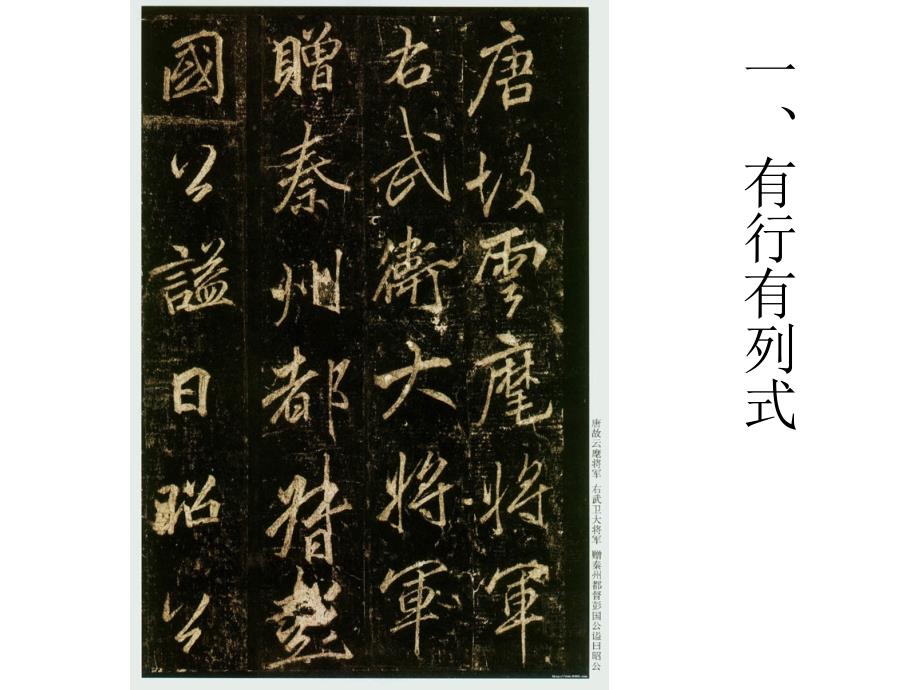 一、有行有列式
唐故雲麾將軍
右武衛大將軍
贈秦州都督彭
國公謚曰昭公
唐故云麾将军 右武卫大将军 赠秦州都督彭国公谥曰昭公